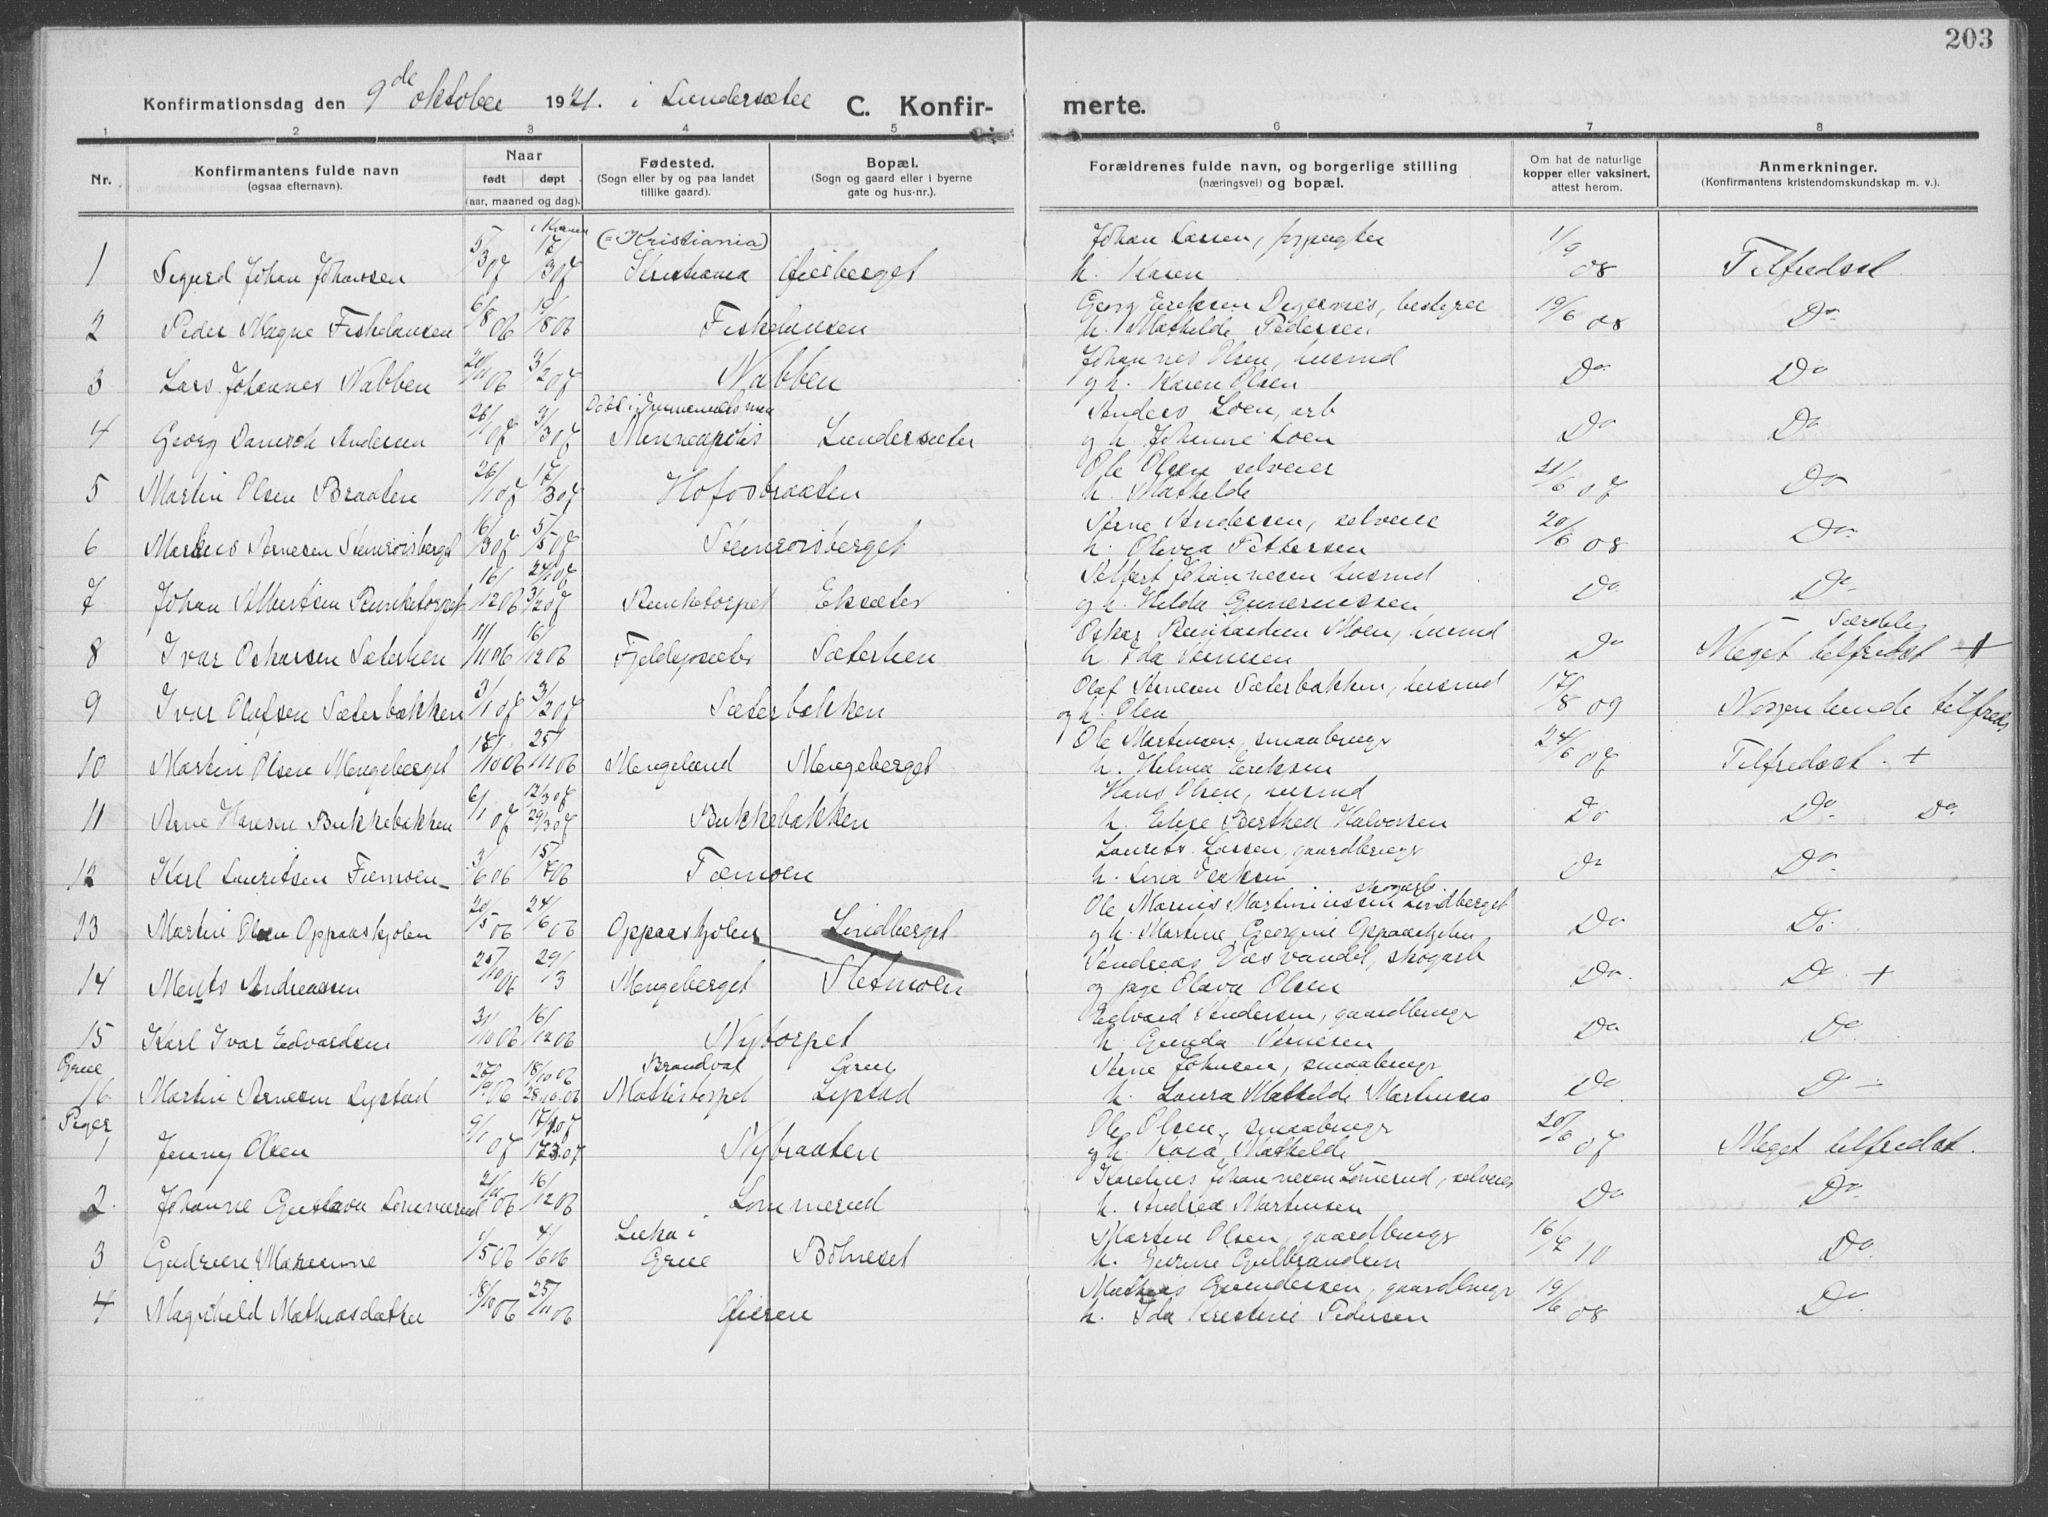 203
Konfirmationsdag den 9de oktober 1921. i Lundersæter C. Konfirmerte.
1 2 3 4 5 6 7 8
Nr. Konfirmantens fulde navn (ogsaa efternavn). Naar født døpt (aar, maaned og dag). Fødested. (Sogn eller by og paa landet tillike gaard). Bopæl. (Sogn og gaard eller i byerne gate og hus-nr.). Forældrenes fulde navn, og borgerlige stilling (næringsvei) og bopæl. Om hat de naturlige kopper eller vaksinert, attest herom. Anmerkninger. (Konfirmantens kristendomskundskap m. v.).
(=Kristiania) Johan Larsen,
1 Sigurd Johan Johansen 5/3 07 17/3 07 Kristiania h. Karen 1/9 08 Tilfredsst
Georg Eriksen Digernes, bestyrer
2 Peder Magne Fiskelausen 6/8 06 08 Fiskelausen h. Mathilde Pedersen 19/6 08 Do
Johannes Olsen, husmd
3 Lars Johannes Nabben 3/2 07 Nabben og h. Karen Olsen Do Do
Anders Loen, arb
4 Georg Andersen 26/1 07 3/3 07 Minneapolis Lundersæter og h. Johanne Loen Do Do
Ole Olsen selveier
5 Martin Olsen Braaten 26/1 07 17/3 07 Hofosbraaten h. Mathilde 21/6 07 Do
Arne Andersen, selveier
6 Markus Arnesen 16/3 07 5/5 07 h. Olivia Pettersen 20/6 08 Do
Albert Johannesen husmd
7 Johan Albertsen Runketorpet 16/12 06 3/2 07 Runketorpet Eksæter og h. Hilda Gunerussen Do Do
Oskar Moen, husmd Særdeles
8 Ivar Oskarsen Sæterlien 11/11 06 16/12 06 Sæterlien h. Ida Arnesen Do Meget tilfredsst +
Olaf Arnesen Sæterbakken, husmd
9 Ivar Olafsen Sæterbakken 3/1 07 3/2 07 Sæterbakken og h. Olea 17/8 09 Nogenlunde tilfreds
Ole Martinsen, smaabrugr
10 Martin Olsen Mengeberget 18/10 06 25/11 06 Mengelund Mengeberget h. Helma Eriksen 24/6 07 Tilfredsst. +
12/3 07 Hans Olsen, husmd
11 Arne Hansen Bukkebakken 6/1 07 29/3 07 Bukkebakken h. Elise Berthea Halvorsen Do Do Do
Laurits Larsen, gaardbrugr
12 Karl Lauritsen 3/6 06 15/7 06 h. Lina Do Do
skogarb. Ole Marius Martiniussen Lindberget
13 Martin Olsen Oppaaskjølen 20/5 06 24/6 06 Oppaaskjølen Lindberget og h. Martine Georgine Oppaaskjølen Do Do
Andreas Væsvandet, skogarb
14 Ments Andreassen 25/10 06 29/3 Mengeberget Sletmoen og pige Olava Olsen Do Do +
Edvard Andersen, gaardbrugr
15 Karl Ivar Edvardsen 31/10 06 16/12 06 Nytorpet h. Gunda Arnesen Do Do
Grue 18/10 06 Brandval Grue Arne Johnsen, smaabrugr
16 Martin Arnesen Lystad 28.10.06 Lystad h. Laura Mathilde Martinsen Do Do
Piger Ole Olsen, smaabrugr
1 Jenny Olsen 9/1 07 17.3.07 Nybraaten og h. Kaia Mathilde 20/6 07 Meget tilfredsst.
Karelius Johannesen Lomerud, selveier
2 Johanne Gustava Lommerud 16/12 06 Lommerud h. Andrea Martinsen Do Do
Martin Olsen, gaardbrugr
3 Gudrun Marianne 1/5 06 4/6 06 i Grue h. Gurine Gulbrandsen 10 Do
Mathias Gundersen, gaardbrugr
4 Magnhild Mathiasdatter 18/10 06 25/11 06 h. Ida Kristine Pedersen 19/6 08 Do